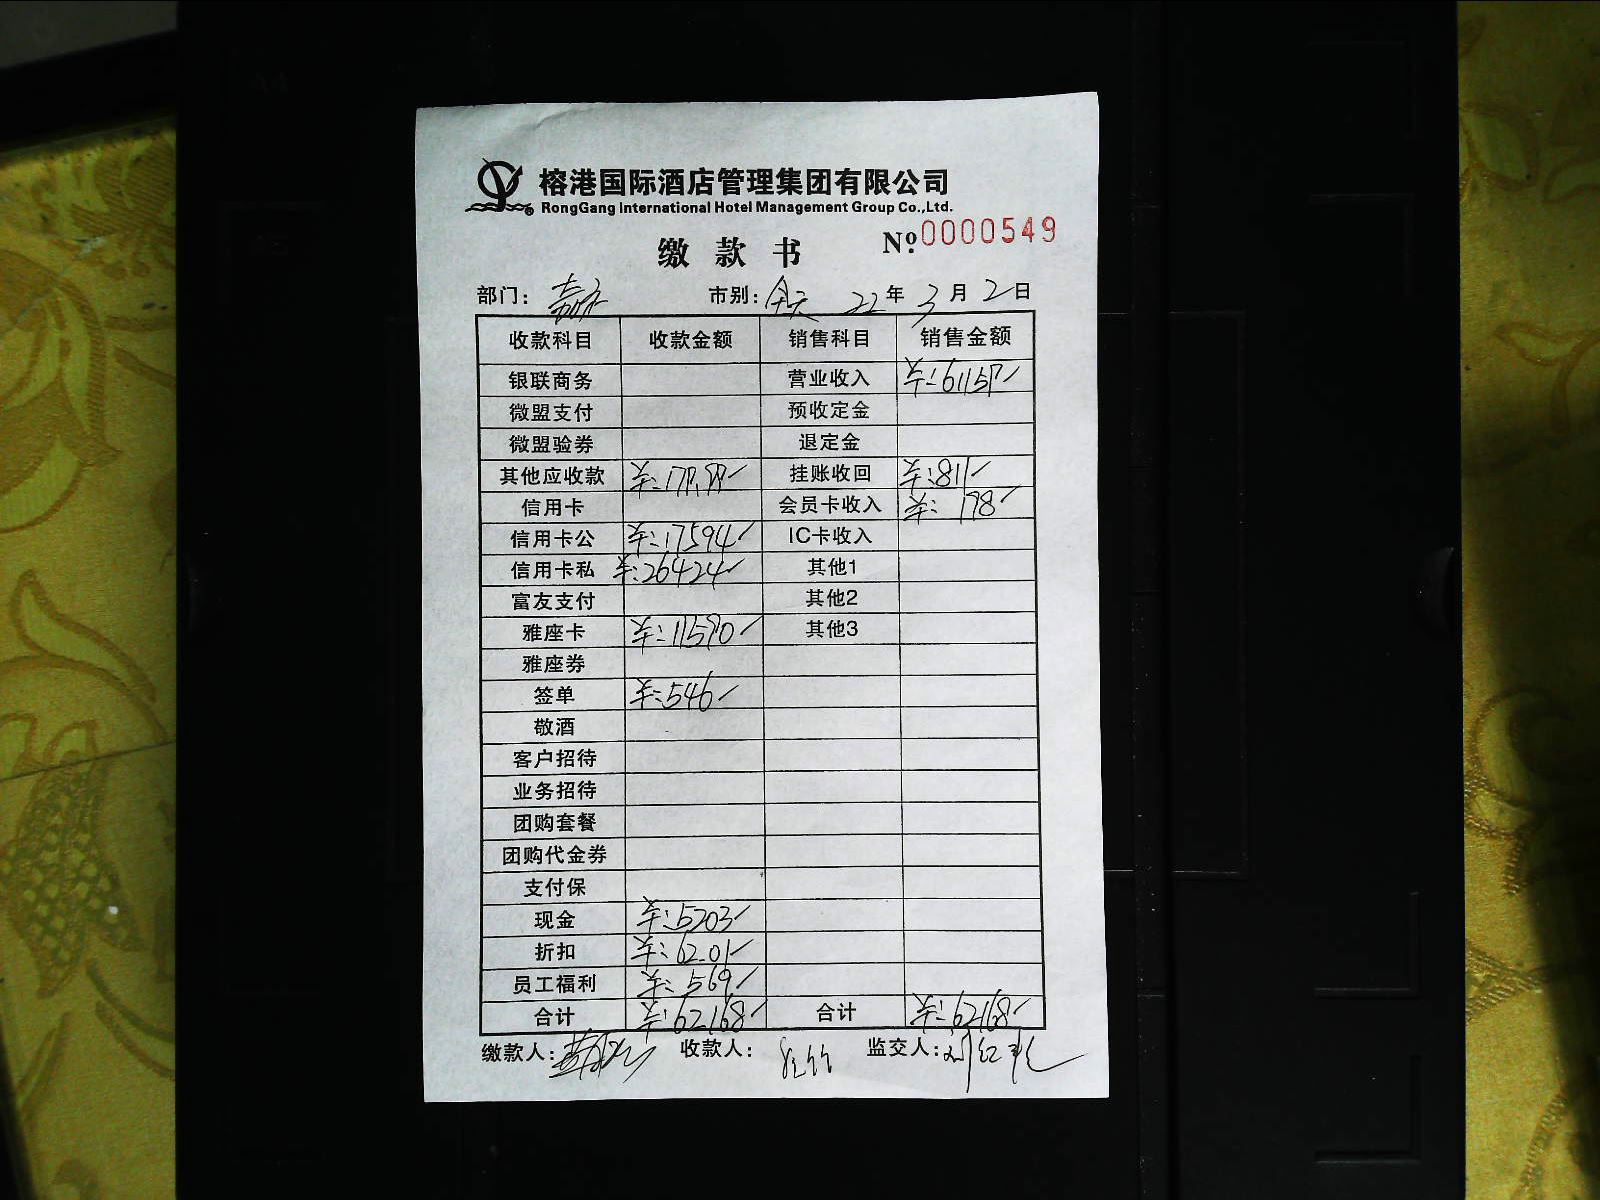 榕港国际酒店管理集团有限公司
RongGang International Hotel Management Group Co.,Ltd.
缴款书 №.0000549
部门: 市别: 全天 22年3月2日
收款科目 收款金额 销售科目 销售金额
银联商务 营业收入 ¥:61159
微盟支付 预收定金
微盟验券 退定金
其他应收款 ¥:179.99 挂账收回 ¥:811
信用卡 会员卡收入 ¥:198
信用卡公 ¥:17594 IC卡收入
信用卡私 ¥:26424 其他1
富友支付 其他2
雅座卡 ¥:11590 其他3
雅座券
签单 ¥:546
敬酒
客户招待
业务招待
团购套餐
团购代金券
支付保
现金 ¥:5203
折扣 ¥:62.01
员工福利 ¥:569
合计 ¥:62168 合计 ¥:62168
缴款人: 收款人: 监交人: